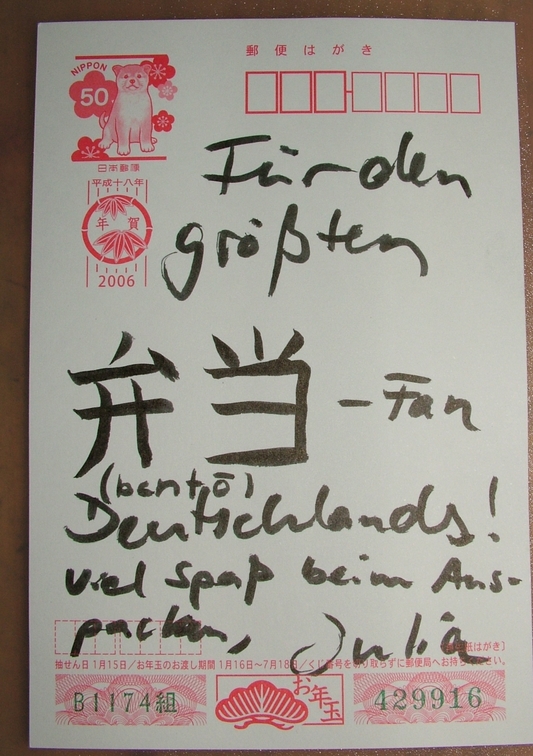 郵便はがき
NIPPON
50
日本郵便
平成十八年
年賀
2006
Für den
größten
弁当-Fan
(bentō)
Deutschlands!
Viel Spaß beim Aus-
packen, Julia
抽せん日 1月15日/お年玉のお渡し期間 1月16日～7月18日/くじ番号を切り取らずに郵便局へお持ちください。
B1174組
お年玉
429916